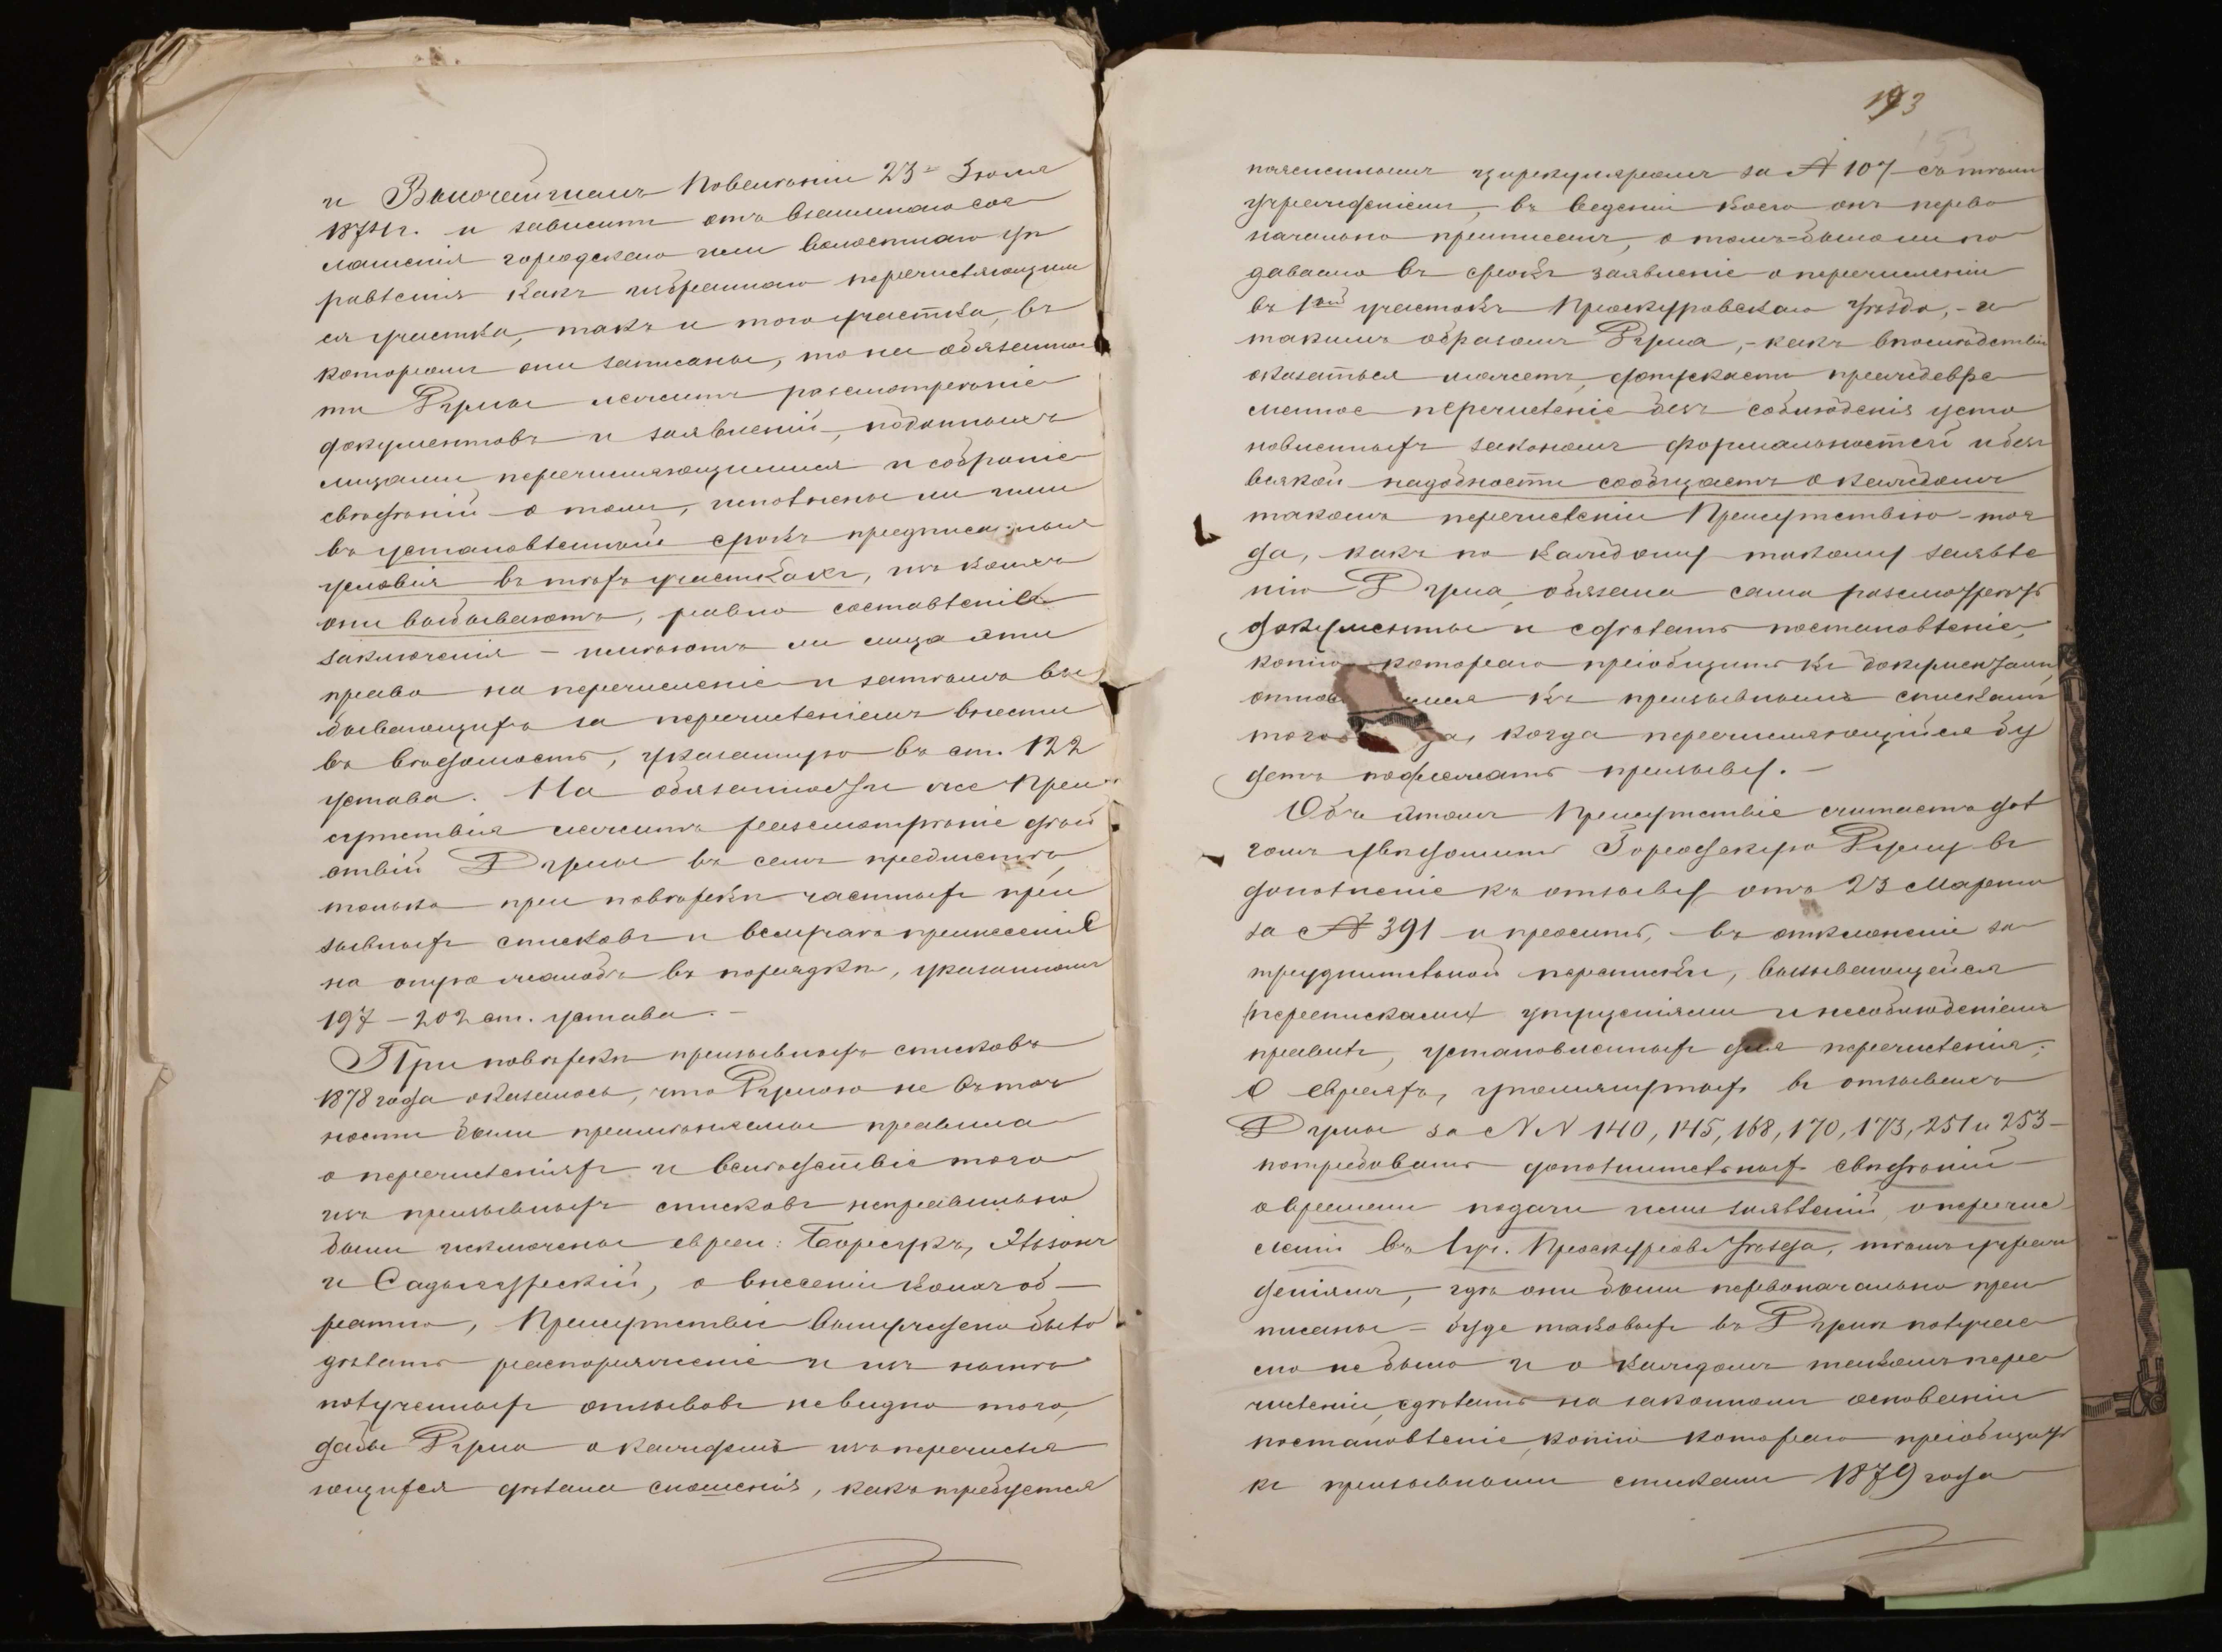 и Высочайшемъ Повелѣніи 23го Іюля
1874 г. и зависитъ отъ взаимнаго сог
лашенія городскаго или волостнаго уп
равленія какъ избраннаго перечисляющими
ся участка, такъ и того участка, въ
которомъ они записаны, то на обязаннос
ти Думы лежитъ разсмотрѣніе
документовъ и заявленій, поданныхъ
лицами перечисляющимися и собраніе
свѣдѣній о томъ, исполнены ли ими
въ установленный срокъ предписанныя
условія въ тѣхъ участкахъ, изъ коихъ
они выбываютъ, равно составленіе
заключенія – имѣютъ ли лица эти
право на перечисленіе и затѣмъ вы
бывающихъ за перечисленіемъ внести
въ вѣдомость, указанную въ ст. 122
устава. На обязанности же При
сутствія лежитъ разсмотрѣніе дѣй
ствій Думы въ семъ предметѣ,
только при повѣркѣ частныхъ при
зывныхъ списковъ и въ случаѣ принесенія
на оную жалобъ въ порядкѣ, указанномъ
197 – 202 ст. устава. –
При повѣркѣ призывныхъ списковъ
1878 года оказалось, что Думою не въ точ
ности были примѣняемы правила
о перечисленіяхъ и вслѣдствіе того
изъ призывныхъ списковъ неправильно
были исключены евреи: Борсукъ,
и, о внесеніи коихъ об–
ратно, Присутствіе вынуждено было
дѣлать распоряженіе и изъ нынѣ
полученныхъ отзывовъ не видно того,
дабы Дума о каждомъ изъ перечисля
ющихся дѣлала сношенія, какъ требуется
193
поясненнымъ циркуляромъ за № 107 съ тѣмъ
учрежденіемъ, въ веденіи коего онъ перво
начально приписанъ, о томъ – было ли по
давамо въ срокъ заявленіе о перечисленіи
въ 1ый участокъ Проскуровскаго уѣзда, – и
такимъ образомъ Дума, – какъ впослѣдствіи
оказаться можетъ, допускаетъ преждевре
менное перечисленіе безъ соблюденія уста
новленныхъ закономъ формальностей и безъ
всякой надобности сообщаетъ о каждомъ
такомъ перечисленіи Присутствію – тог
да, какъ по каждому такому заявле
нію Дума, обязана сама разсмотрѣть
документы и сдѣлать постановленіе,
копію котораго пріобщить къ документамъ,
къ призывнымъ спискамъ
того когда перечисляющійся бу
детъ подлежать призыву. –
Объ этомъ Присутствіе считаетъ дол
гомъ увѣдомить Городскую Думу въ
дополненіе къ отзыву отъ 23 Марта
за № 391 и проситъ, – въ отклоненіи за
труднительной переписки, вызывающейся
(переписками) упущеніями и несоблюденіемъ
правилъ, установленныхъ для перечисленія;
О евреяхъ, упомянутыхъ въ отзывахъ
Думы за NN 140, 145, 168, 170, 173, 251 и 253 –
потребовать дополнительныхъ свѣдѣній
о времени подачи ими заявленій о перечис
леніи въ 1 уч. Проскуров. уѣзда, тѣмъ учреж
деніямъ, гдѣ они были первоначально при
писаны – буде таковыхъ въ Думѣ получае
мо не было и о каждомъ такомъ пере
численіи, сдѣлать на законномъ основаніи
постановленіе, копію котораго пріобщать
къ призывнымъ спискамъ 1879 года